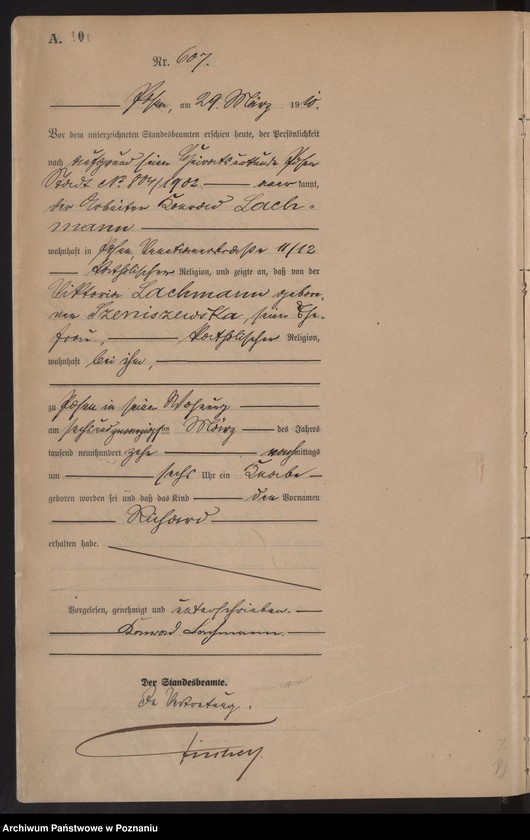 A. 101
Nr. 607.
Posen, am 29. März 1910.
Vor dem unterzeichneten Standesbeamten erschien heute, der Persönlichkeit
nach auf Grund seiner Heiratsurkunde Posen
Stadt No. 804/1902 anerkannt,
der Arbeiter Konrad Lach-
mann
wohnhaft in Posen, Venetianerstraße 11/12
katholischer Religion, und zeigte an, daß von der
Viktoria Lachmann gebore-
nen Szeniszewska, seiner Ehe-
frau, katholischer Religion,
wohnhaft bei ihm,
zu Posen in seiner Wohnung
am sechsundzwanzigsten März des Jahres
tausend neunhundert zehn nachmittags
um sechs Uhr ein Knabe
geboren worden sei und daß das Kind den Vornamen
Richard
erhalten habe.
Vorgelesen, genehmigt und unterschrieben.
Konrad Lachmann.
Der Standesbeamte.
In Vertretung.
Archiwum Państwowe w Poznaniu